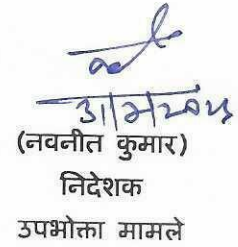 (नवनीत कुमार)
निदेशक
उपभोक्ता मामले